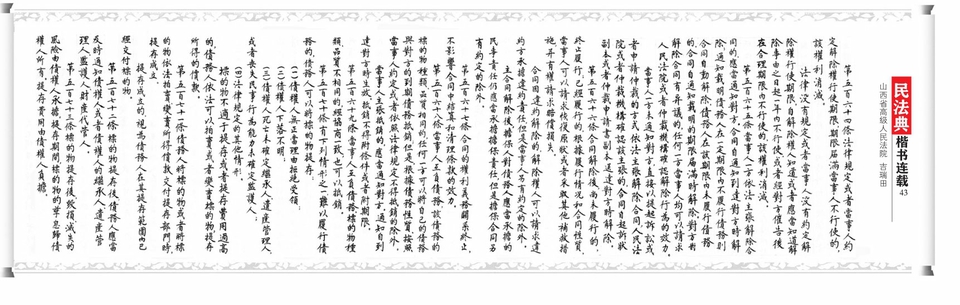 民法典
楷书连载
43
山西省高级人民法院 吉瑞田
第五百六十四条法律规定或者当事人约
定解除权行使期限,期限届满当事人不行使的,
该权利消灭。
法律没有规定或者当事人没有约定解
除权行使期限,自解除权人知道或者应当知道解
除事由之日起一年内不行使,或者经对方催告后
在合理期限内不行使的,该权利消灭。
第五百六十五条当事人一方依法主张解除合
同的,应当通知对方。合同自通知到达对方时解
除;通知载明债务人在一定期限内不履行债务则
合同自动解除,债务人在该期限内未履行债务
的,合同自通知载明的期限届满时解除。对方对
解除合同有异议的,任何一方当事人均可以请求
人民法院或者仲裁机构确认解除行为的效力。
当事人一方未通知对方,直接以提起诉讼或
者申请仲裁的方式依法主张解除合同,人民法
院或者仲裁机构确认该主张的,合同自起诉状
副本或者仲裁申请书副本送达对方时解除。
第五百六十六条合同解除后,尚未履行的,
终止履行;已经履行的,根据履行情况和合同性质,
当事人可以请求恢复原状或者采取其他补救措
施,并有权请求赔偿损失。
合同因违约解除的,解除权人可以请求违
约方承担违约责任,但是当事人另有约定的除外。
主合同解除后,担保人对债务人应当承担的
民事责任仍应当承担担保责任,但是担保合同另
有约定的除外。
第五百六十七条合同的权利义务关系终止,
不影响合同中结算和清理条款的效力。
第五百六十八条当事人互负债务,该债务的
标的物种类、品质相同的,任何一方可以将自己的债务
与对方的到期债务抵销;但是,根据债务性质、按照
当事人约定或者依照法律规定不得抵销的除外。
当事人主张抵销的,应当通知对方。通知自到
达对方时生效。抵销不得附条件或者附期限。
第五百六十九条当事人互负债务,标的物种
类、品质不相同的,经协商一致,也可以抵销。
第五百七十条有下列情形之一,难以履行债
务的,债务人可以将标的物提存:
(一)债权人无正当理由拒绝受领;
(二)债权人下落不明;
(三)债权人死亡未确定继承人、遗产管理人,
或者丧失民事行为能力未确定监护人;
(四)法律规定的其他情形。
标的物不适于提存或者提存费用过高
的,债务人依法可以拍卖或者变卖标的物,提存
所得的价款。
第五百七十一条债务人将标的物或者将标
的物依法拍卖、变卖所得价款交付提存部门时,
提存成立。
提存成立的,视为债务人在其提存范围内已
经交付标的物。
第五百七十二条标的物提存后,债务人应当
及时通知债权人或者债权人的继承人、遗产管
理人、监护人、财产代管人。
第五百七十三条标的物提存后,毁损、灭失的
风险由债权人承担。提存期间,标的物的孳息归债
权人所有。提存费用由债权人负担。